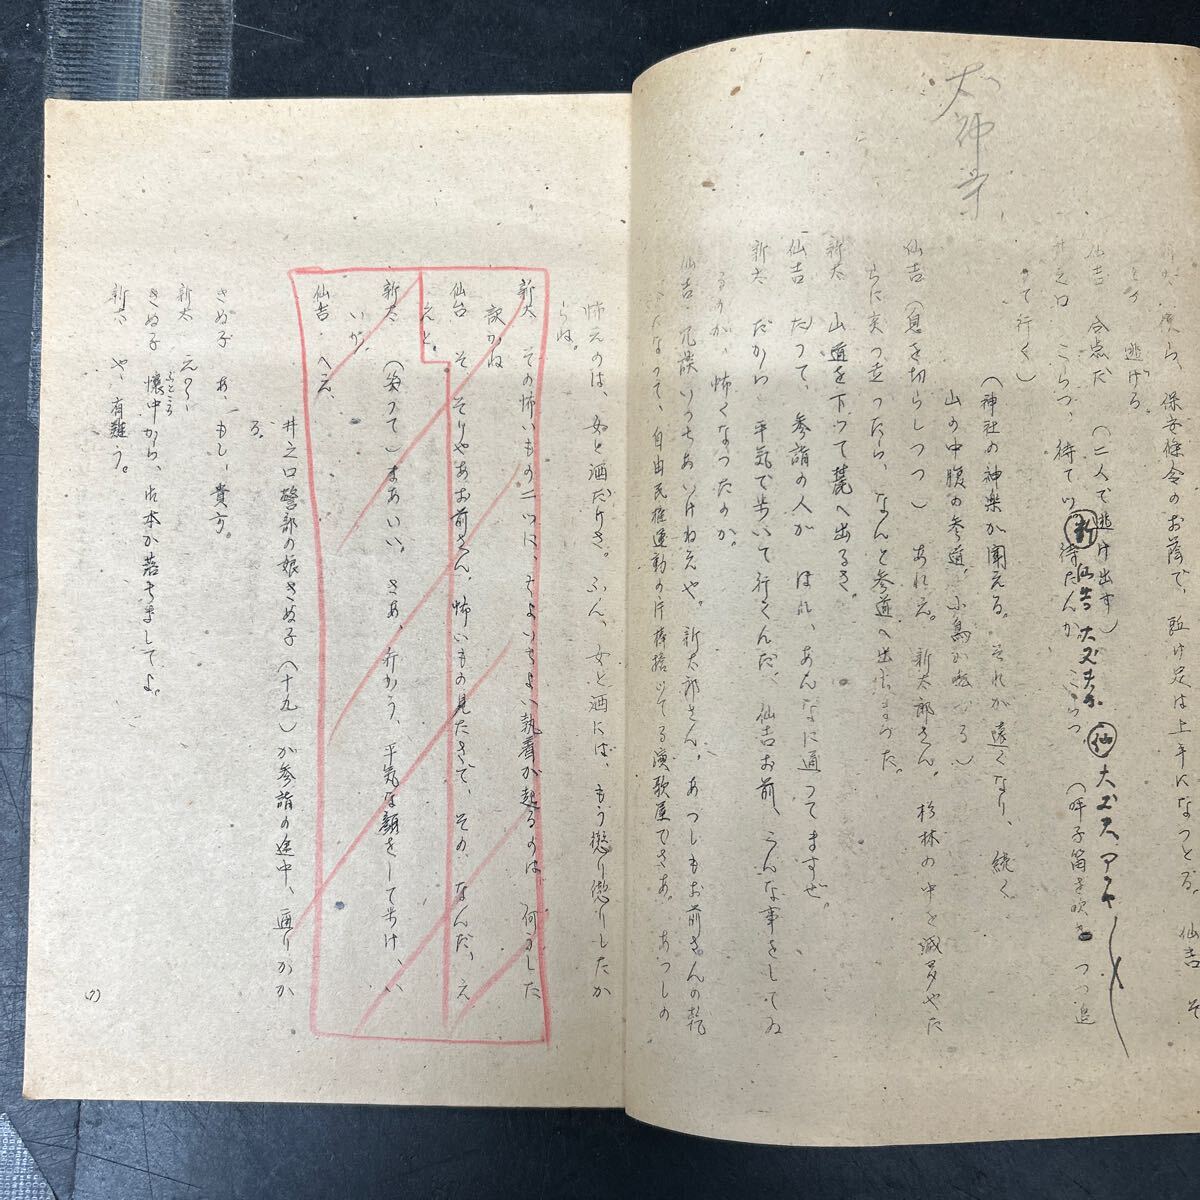 新太 僕ら、保安條令のお蔭で、駈け足は上手になつとる。仙吉 そ
らつ 逃げろ。
仙吉 合点だ (二人で逃げ出す)
井之口 こらつ、待てッ 待たんか。こらつ (呼子笛を吹き つつ追
つて行く)
(神社の神楽が聞える。それが遠くなり、続く
山の中腹の参道。小鳥が囀る)
仙吉 (息を切らしつつ) あれえ。新太郎さん。杉林の中を滅多やた
らに突つ走つたら、なんと参道へ出ちまつた。
新太 山道を下つて麓へ出るさ。
仙吉 だつて、参詣の人が ほれ、あんなに通つてますぜ。
新太 だから 平気で歩いて行くんだ。仙吉お前、こんな事をしてゐ
るのが、怖くなつたのか。
仙吉 冗談いつちあいけねえや。新太郎さん。あつしもお前さんの乾
になつて、自由民権運動の片棒担いでる演歌屋でさあ。あつしの
太神楽
新 仙吉 大丈夫か
仙 大丈夫
怖えのは、女と酒だけさ。ふん、女と酒には、もう懲り懲りしたか
らね。
新太 その怖いもの二つに、ちよいちよい執着が起るのは、何うした
訳かね
仙吉 そ そりやあお前さん。怖いもの見たさで、その、なんだ、え
えと。
新太 (笑つて) まあいい。さあ、行かう、平気な顔をして歩け、い
いが、
仙吉 へえ。
井之口警部の娘きぬ子(十九)が参詣の途中、通りかか
る。
きぬ子 あ、もし、貴方。
新太 え?
きぬ子 懐中から、御本が落ちましてよ。
ふところ
新太 や、有難う。
(7)